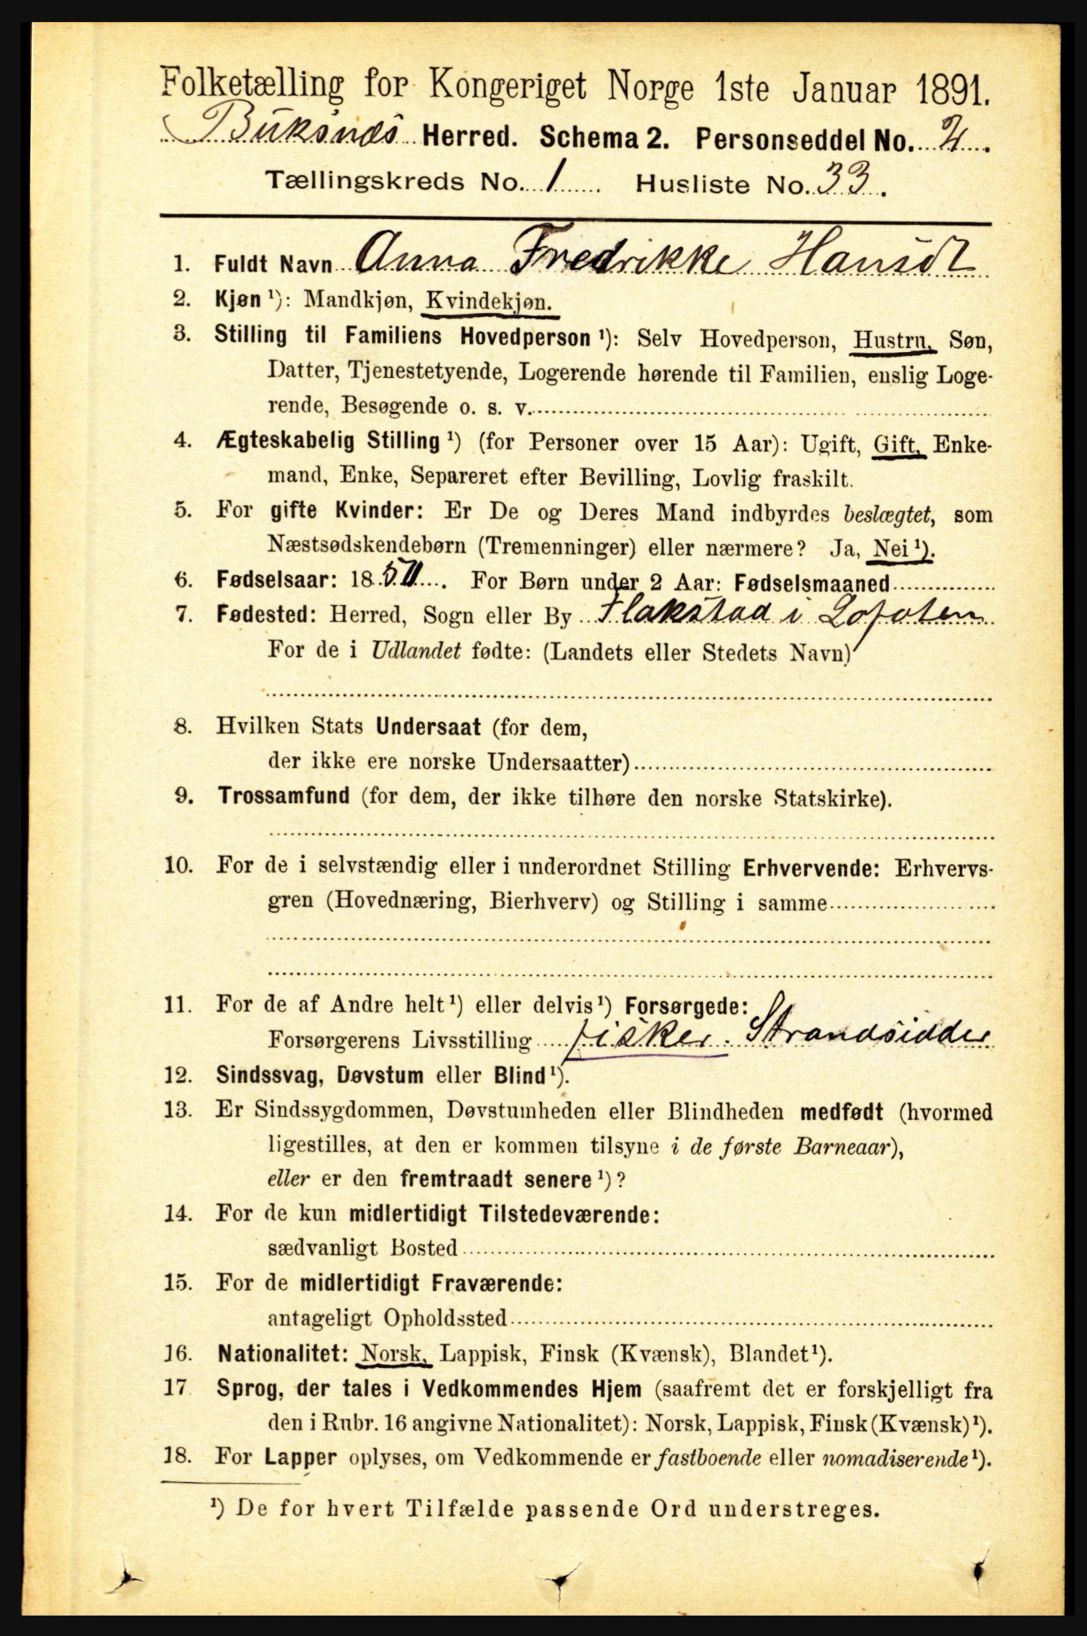 Folketælling for Kongeriget Norge 1ste Januar 1891.
Buksnæs Herred. Schema 2. Personseddel No. 2.
Tællingskreds No. 1. Husliste No. 33.
1. Fuldt Navn Anna Fredrikke Hansdt
2. Kjøn ¹): Mandkjøn, Kvindekjøn.
3. Stilling til Familiens Hovedperson ¹): Selv Hovedperson, Hustru, Søn,
Datter, Tjenestetyende, Logerende hørende til Familien, enslig Loge-
rende, Besøgende o. s. v.
4. Ægteskabelig Stilling ¹) (for Personer over 15 Aar): Ugift, Gift, Enke-
mand, Enke, Separeret efter Bevilling, Lovlig fraskilt.
5. For gifte Kvinder: Er De og Deres Mand indbyrdes beslægtet, som
Næstsødskendebørn (Tremenninger) eller nærmere? Ja, Nei ¹).
6. Fødselsaar: 18 . For Børn under 2 Aar: Fødselsmaaned
7. Fødested: Herred, Sogn eller By Flakstad i Lofoten
For de i Udlandet fødte: (Landets eller Stedets Navn)
8. Hvilken Stats Undersaat (for dem,
der ikke ere norske Undersaatter)
9. Trossamfund (for dem, der ikke tilhøre den norske Statskirke).
10. For de i selvstændig eller i underordnet Stilling Erhvervende: Erhvervs-
gren (Hovednæring, Bierhverv) og Stilling i samme
11. For de af Andre helt ¹) eller delvis ¹) Forsørgede:
Forsørgerens Livsstilling fisker. Strandsidder
12. Sindssvag, Døvstum eller Blind ¹).
13. Er Sindssygdommen, Døvstumheden eller Blindheden medfødt (hvormed
ligestilles, at den er kommen tilsyne i de første Barneaar),
eller er den fremtraadt senere ¹)?
14. For de kun midlertidigt Tilstedeværende:
sædvanligt Bosted
15. For de midlertidigt Fraværende:
antageligt Opholdssted
16. Nationalitet: Norsk, Lappisk, Finsk (Kvænsk), Blandet ¹).
17 Sprog, der tales i Vedkommendes Hjem (saafremt det er forskjelligt fra
den i Rubr. 16 angivne Nationalitet): Norsk, Lappisk, Finsk (Kvænsk) ¹).
18. For Lapper oplyses, om Vedkommende er fastboende eller nomadiserende ¹).
¹) De for hvert Tilfælde passende Ord understreges.